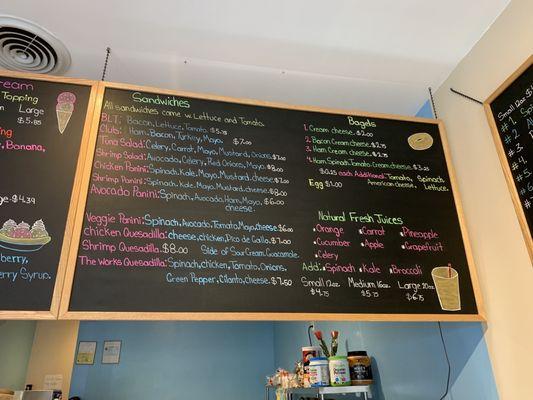 ream
Topping
Large
$5.85
Banana,
$4.39
erry,
berry Syrup.
Sandwiches
All sandwiches come w. Lettuce and Tomato.
BLT: Bacon, Lettuce, Tomato $5.25
Club: Ham, Bacon, Turkey, Mayo. $7.00
Tuna Salad: Celery, Carrot, Mayo, Mustard, Onions $7.00
Shrimp Salad: Avocado, Celery, Red Onions, Mayo. $8.00
Chicken Panini: Spinach, Kale, Mayo, Mustard, cheese. $7.00
Shrimp Panini: Spinach, Kale, Mayo, Mustard, cheese. $8.00
Avocado Panini: Spinach, Avocado, Ham, Mayo, cheese. $6.00
Veggie Panini: Spinach, Avocado, Tomato, Mayo, cheese $6.00
Chicken Quesadilla: cheese, chicken, Pico de Gallo. $7.00
Shrimp Quesadilla. $8.00 Side of Sour Cream, Guacamole
The Works Quesadilla: Spinach, chicken, Tomato, Onions.
Green Pepper, Cilantro, Cheese. $7.50
Bagels
1. Cream cheese. $2.00
2. Bacon Cream cheese. $2.75
3. Ham Cream cheese. $2.75
4. Ham, Spinach, Tomato, Cream cheese. $3.25
$0.25 each Additional: Tomato, Spinach
American cheese, Lettuce.
Egg $1.00
Natural Fresh Juices
Orange Carrot Pineapple
Cucumber Apple Grapefruit
Celery
Add: Spinach Kale Broccoli
Small 12oz Medium 16oz Large 20oz
$4.75 $5.75 $6.75
Small 12oz
1.
2.
3.
4.
5.
6.